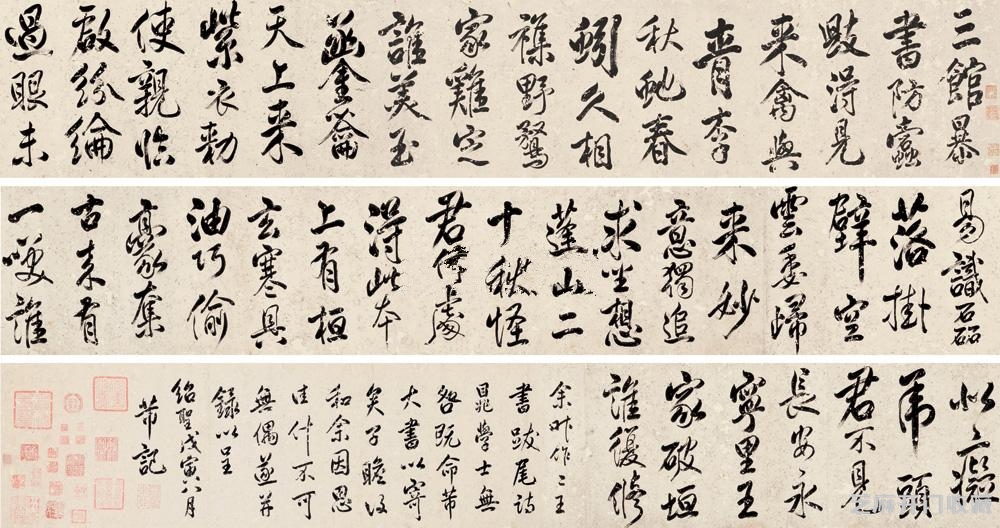 三館暴
書防蠹
毀得見
来禽與
青李
秋虵春
蚓久相
襍野鶩
家雞定
誰美玉
函金龠
天上来
紫衣勑
使親臨
啟紛綸
過眼未
易識磊
落掛
壁空
雲委歸
来妙
意獨追
求坐想
蓬山二
十秋怪
君何處
得此本
上有桓
玄寒具
油巧偷
豪奪
古来有
一笑誰
似癡
虎頭
君不見
長安永
寧里王
家破垣
誰復修
余昨作二王
書跋尾詩
晁學士無
咎既命芾
大書以寄
矣子瞻後
和余因思
佳什不可
無偶遂并
錄以呈
紹聖戊寅八月
芾記